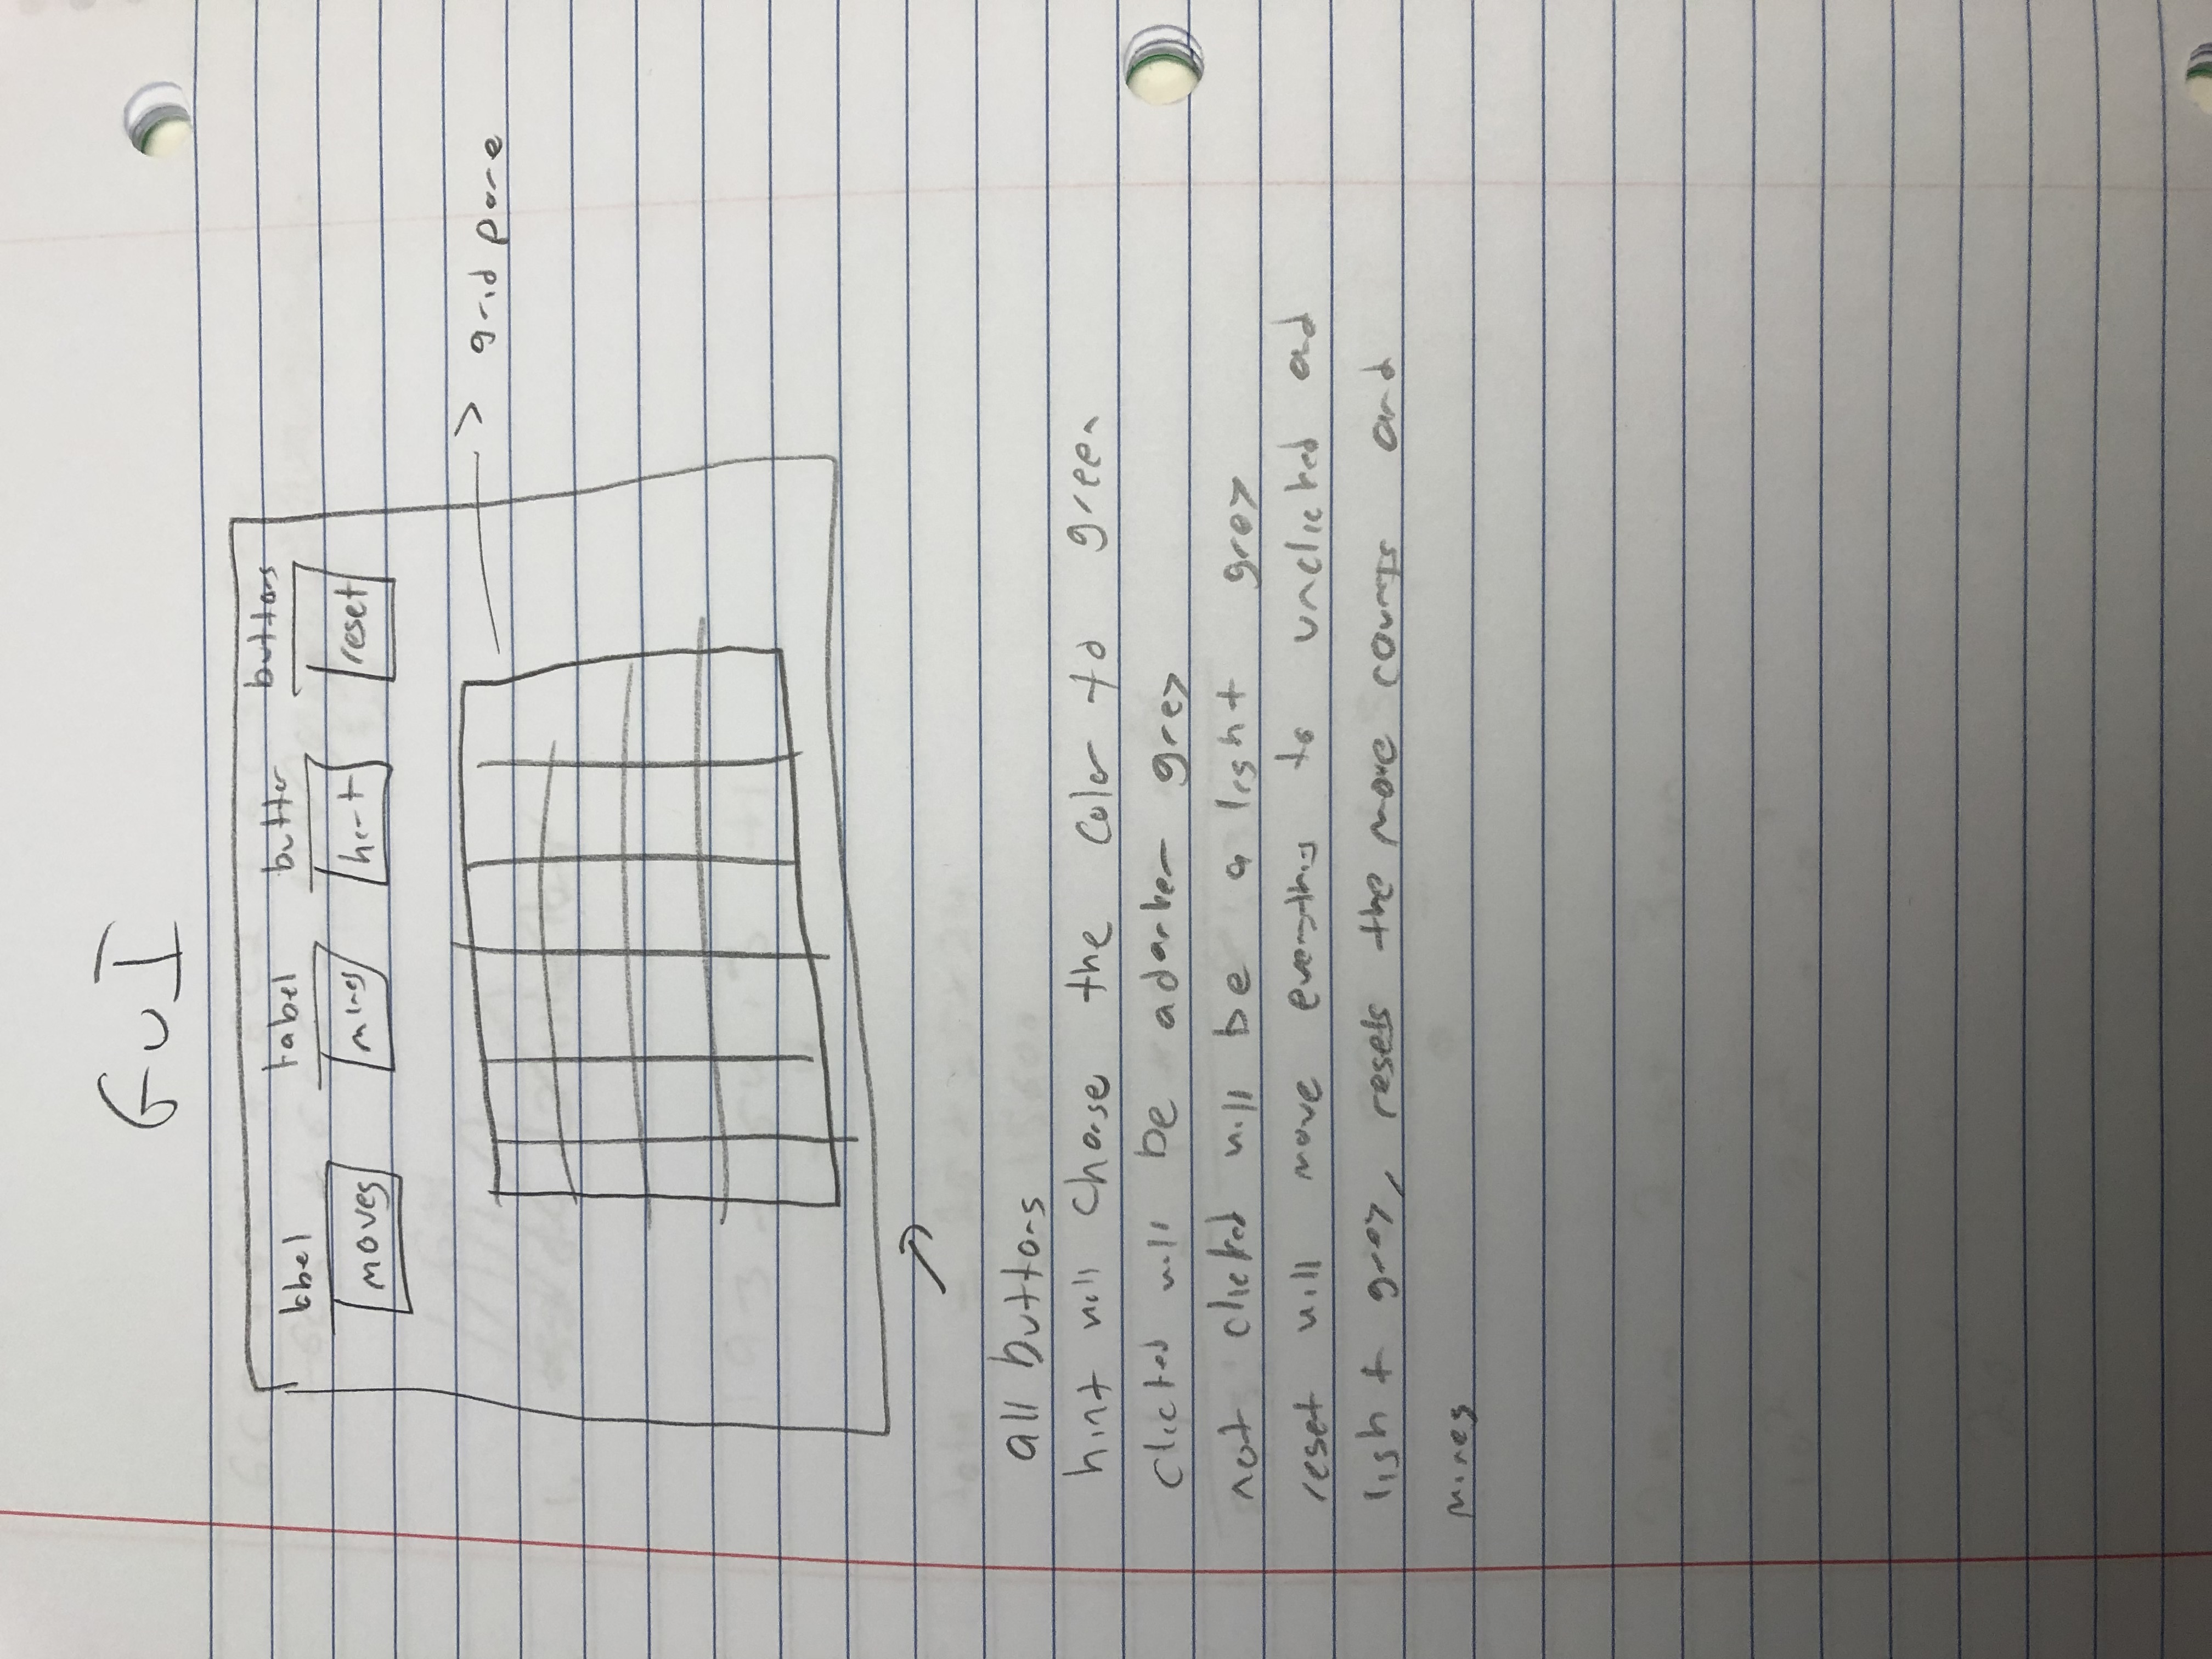 GUI
label label button buttons
moves mines hint reset
grid pane
all buttons
hint will change the color to green
clicked will be a darker grey
not clicked will be a light grey
reset will move everything to unclicked and
light grey, resets the move counts and
mines